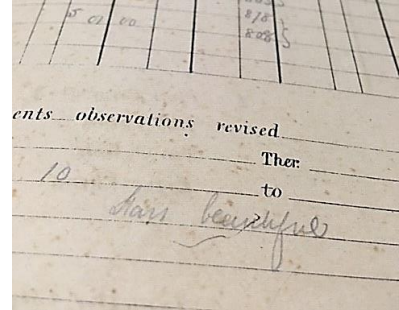 5 01 00
818
808
ents observations revised
Ther.
10 to
Stars beautiful